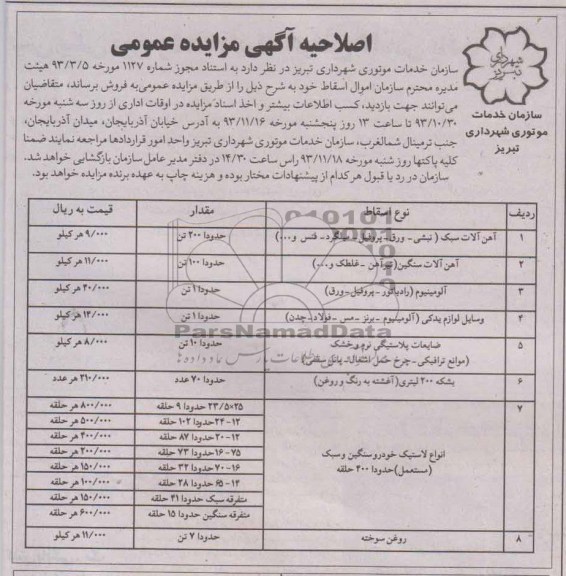 اصلاحیه آگهی مزایده عمومی
شهرداری تبریز
سازمان خدمات
موتوری شهرداری
تبریز
سازمان خدمات موتوری شهرداری تبریز در نظر دارد به استناد مجوز شماره ۱۱۲۷ مورخه ۹۳/۳/۵ هیئت
مدیره محترم سازمان اموال اسقاط خود به شرح ذیل را از طریق مزایده عمومی به فروش برساند، متقاضیان
می‌توانند جهت بازدید، کسب اطلاعات بیشتر و اخذ اسناد مزایده در اوقات اداری از روز سه شنبه مورخه
۹۳/۱۰/۳۰ تا ساعت ۱۳ روز پنجشنبه مورخه ۹۳/۱۱/۱۶ به آدرس خیابان آذربایجان، میدان آذربایجان،
جنب ترمینال شمالغرب، سازمان خدمات موتوری شهرداری تبریز واحد امور قراردادها مراجعه نمایند ضمنا
کلیه پاکتها روز شنبه مورخه ۹۳/۱۱/۱۸ راس ساعت ۱۴/۳۰ در دفتر مدیر عامل سازمان بازگشایی خواهد شد.
سازمان در رد یا قبول هر کدام از پیشنهادات مختار بوده و هزینه چاپ به عهده برنده مزایده خواهد بود.
ردیف نوع اسقاط مقدار قیمت به ریال
۱ آهن آلات سبک (نبشی- ورق- پروفیل- میلگرد- فنس و...) حدودا ۲۰۰ تن ۹/۰۰۰ هر کیلو
۲ آهن آلات سنگین (تیرآهن -غلطک و...) حدودا ۱۰۰ تن ۱۱/۰۰۰ هر کیلو
۳ آلومینیوم (رادیاتور- پروفیل- ورق) حدودا ۱ تن ۴۰/۰۰۰ هر کیلو
۴ وسایل لوازم یدکی (آلومینیوم -برنز -مس -فولاد-چدن) حدودا ۱ تن ۱۴/۰۰۰ هر کیلو
۵ ضایعات پلاستیکی نرم و خشک حدودا ۱۰ تن ۸/۰۰۰ هر کیلو
(موانع ترافیکی-چرخ حمل آشغال-
۶ بشکه ۲۰۰ لیتری (آغشته به رنگ و روغن) حدودا ۷۰ عدد ۲۱۰/۰۰۰ هر عدد
۷ انواع لاستیک خودرو سنگین و سبک
(مستعمل) حدودا ۴۰۰ حلقه
۲۳/۵×۲۵ حدودا ۹ حلقه ۸۰۰/۰۰۰ هر حلقه
۱۲-۲۴ حدودا ۱۰۲ حلقه ۵۰۰/۰۰۰ هر حلقه
۱۲-۲۰ حدودا ۸۷ حلقه ۴۰۰/۰۰۰ هر حلقه
۷۵-۱۶ حدودا ۷۳ حلقه ۲۰۰/۰۰۰ هر حلقه
۱۶-۷۰ حدودا ۳۲ حلقه ۱۵۰/۰۰۰ هر حلقه
۱۴-۶۵ حدودا ۲۸ حلقه ۱۰۰/۰۰۰ هر حلقه
متفرقه سبک حدودا ۴۱ حلقه ۱۵۰/۰۰۰ هر حلقه
متفرقه سنگین حدودا ۱۵ حلقه ۶۰۰/۰۰۰ هر حلقه
۸ روغن سوخته حدودا ۷ تن ۱۱/۰۰۰ هر کیلو
ParsNamadData